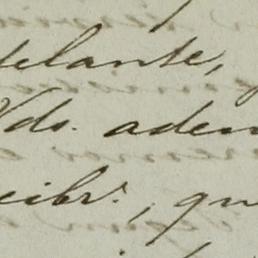 delante,
Vds. adem
ecibr., qu